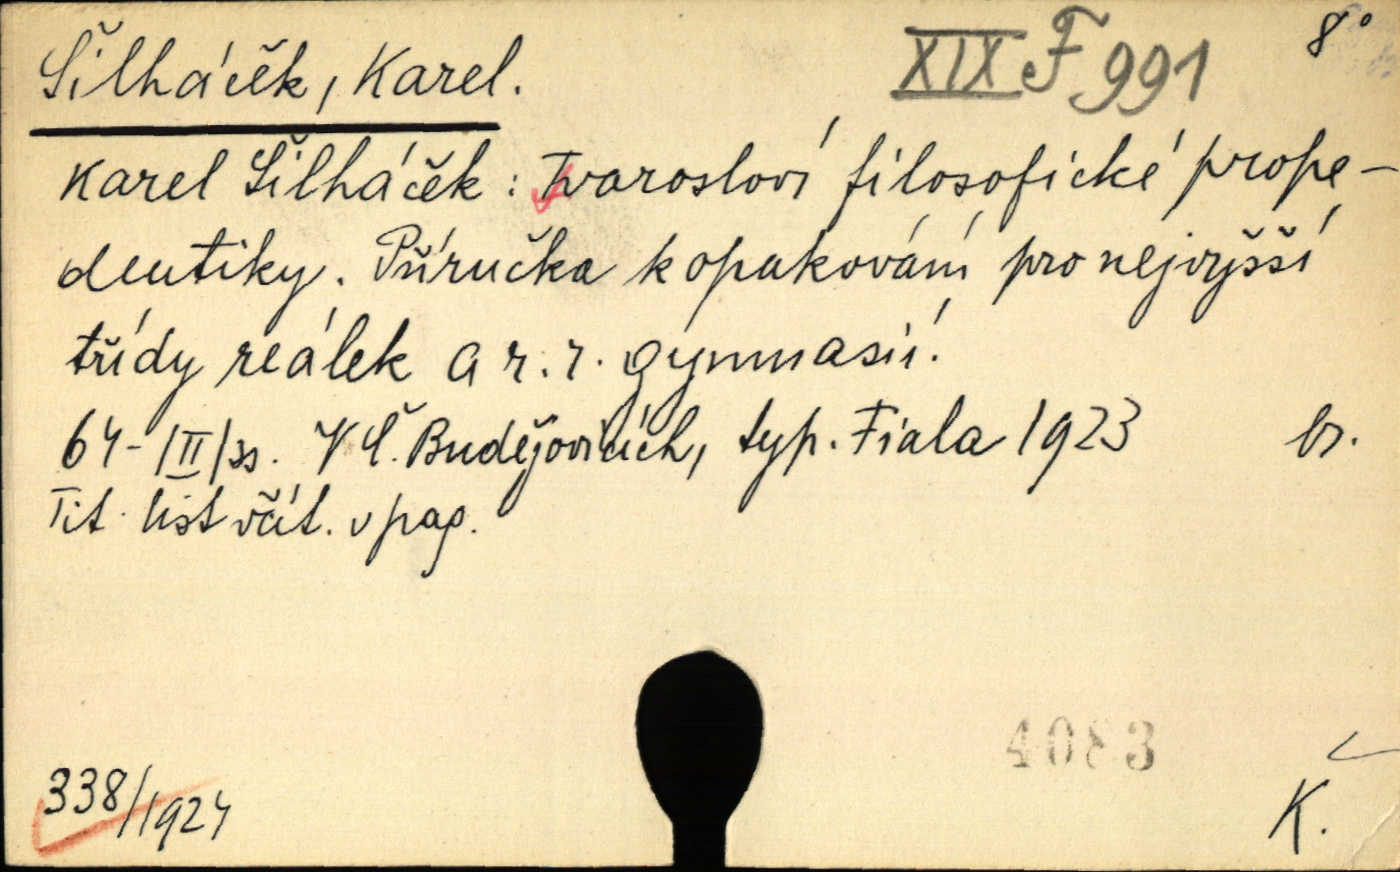 Šilháček, Karel.
XIX F 991
8°
Karel Šilháček: Tvarosloví filosofické prope-
deutiky. Příručka k opakování pro nejvyšší
třídy reálek a r. r. gymnasií.
64-/II/ss. V Č. Budějovicích, typ. Fiala 1923 br.
Tit. list včít. v pag.
4083
338/1924
K.